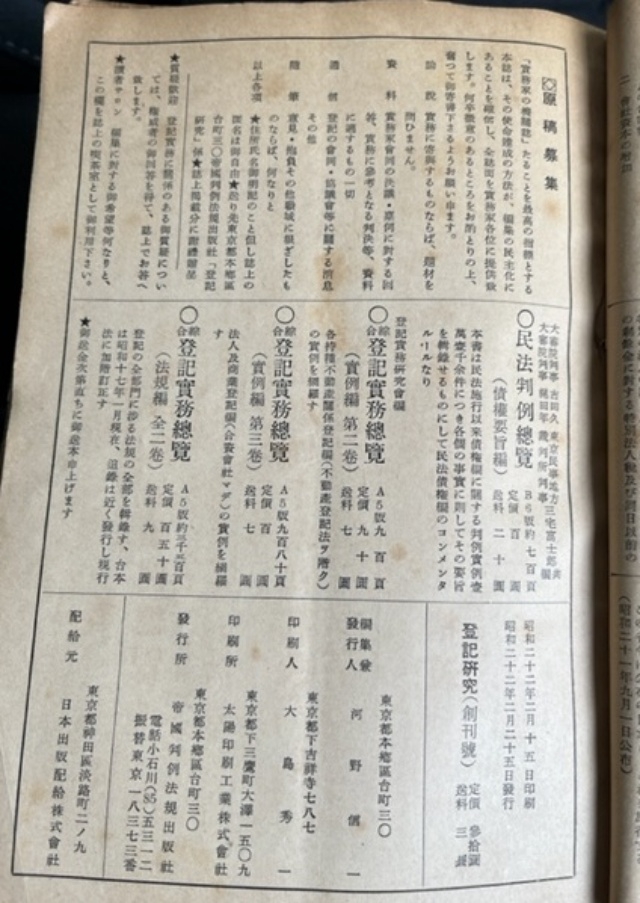 ◇原稿募集
「實務家の機關誌」たることを最高の指標とする
本誌は、その使命達成の方法が、編集の民主化に
あることを確信し、全誌面を實務家各位に提供致
します。何卒微意のあるところをお酌とりの上、
奮つて御寄書下さるようお願い申します。
論說 實務に寄與するものならば、題材を
問ひません。
資料 實務家會同の決議・票例に對する回
答、實務に參考となる判決等、資料
に適するもの一切
通信 登記の會同・協議會等に關する消息
その他
隨筆 意見・抱負その他職域に根ざしたも
のならば、何なりと
以上各項 ★住所氏名御明記のこと但し誌上の
匿名は御自由★送り先東京都本鄕區
台町三〇帝國判例法規出版社「登記
研究」係★誌上揭載分に謝禮贈呈
★質疑歡迎 登記實務に關係のある御質疑につい
ては、權威者の御回答を得て、誌上でお答へ
致します。
★讀者サロン 編集に對する御希望等何なりと、
この欄を誌上の喫茶室として御利用下さい。
大審院判事 古田久 東京民事地方 三宅富士郎 共
大審院判事 梶田年 裁判所判事 編
○民法判例總覽 B6版約七百頁
(債權要旨編) 定價 百圓
送料 二十圓
本書は民法施行以來債權編に關する判例實例壹
萬壹千余件につき各個の事實に則してその要旨
を輯錄せるものにして民法債權編のコンメンタ
ールなり
登記實務研究會編
○綜合登記實務總覽 A5版九百頁
(實例編 第二卷) 定價 九十圓
送料 七圓
各持種不動產關係登記編(不動產登記法ヲ除ク)
の實例を網羅す
○綜合登記實務總覽 A5版九百八十頁
(實例編 第三卷) 定價 百圓
送料 七圓
法人及商業登記編(合資會社マデ)の實例を網羅
す
○綜合登記實務總覽 A5版約三千三百頁
(法規編 全二卷) 定價 百五十圓
送料 九圓
登記の全部門に涉る法規の全部を輯錄す、台本
は昭和十七年一月現在、追錄は近く發行し現行
法に加除訂正す
★御送金次第直ちに御送本申上げます
昭和二十二年二月十五日印刷
昭和二十二年二月二十五日發行
登記研究(創刊號) 定價 參拾圓
送料 三圓
東京都本鄕區台町三〇
編集兼發行人 河野 一
東京都下吉祥寺七八七
印刷人 大島秀一
東京都下三鷹町大澤一五〇九
印刷所 太陽印刷工業株式會社
東京都本鄕區台町三〇
發行所 帝國判例法規出版社
電話小石川(85)五三一二
振替東京一八三七三番
東京都神田區淡路町二ノ九
配給元 日本出版配給株式會社
(昭和二十一年九月一日公布)